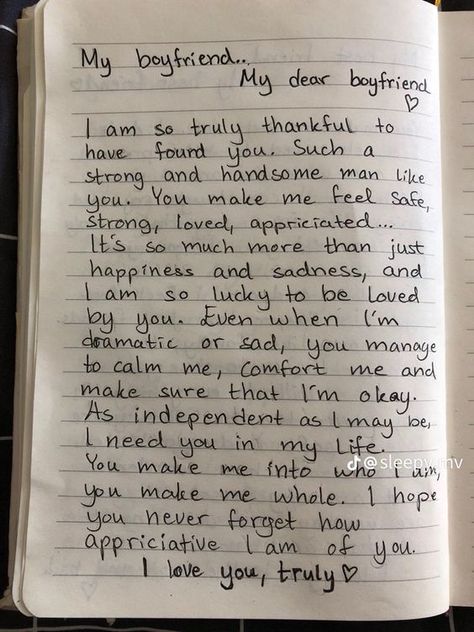 My boyfriend..
My dear boyfriend
♡
I am so truly thankful to
have found you. Such a
strong and handsome man like
you. You make me feel safe,
strong, loved, appriciated...
It's so much more than just
happiness and sadness, and
I am so lucky to be loved
by you. Even when I'm
dramatic or sad, you manage
to calm me, comfort me and
make sure that I'm okay.
As independent as I may be,
I need you in my life.
You make me into who I am,
you make me whole. I hope
you never forget how
appriciative I am of you.
I love you, truly ♡